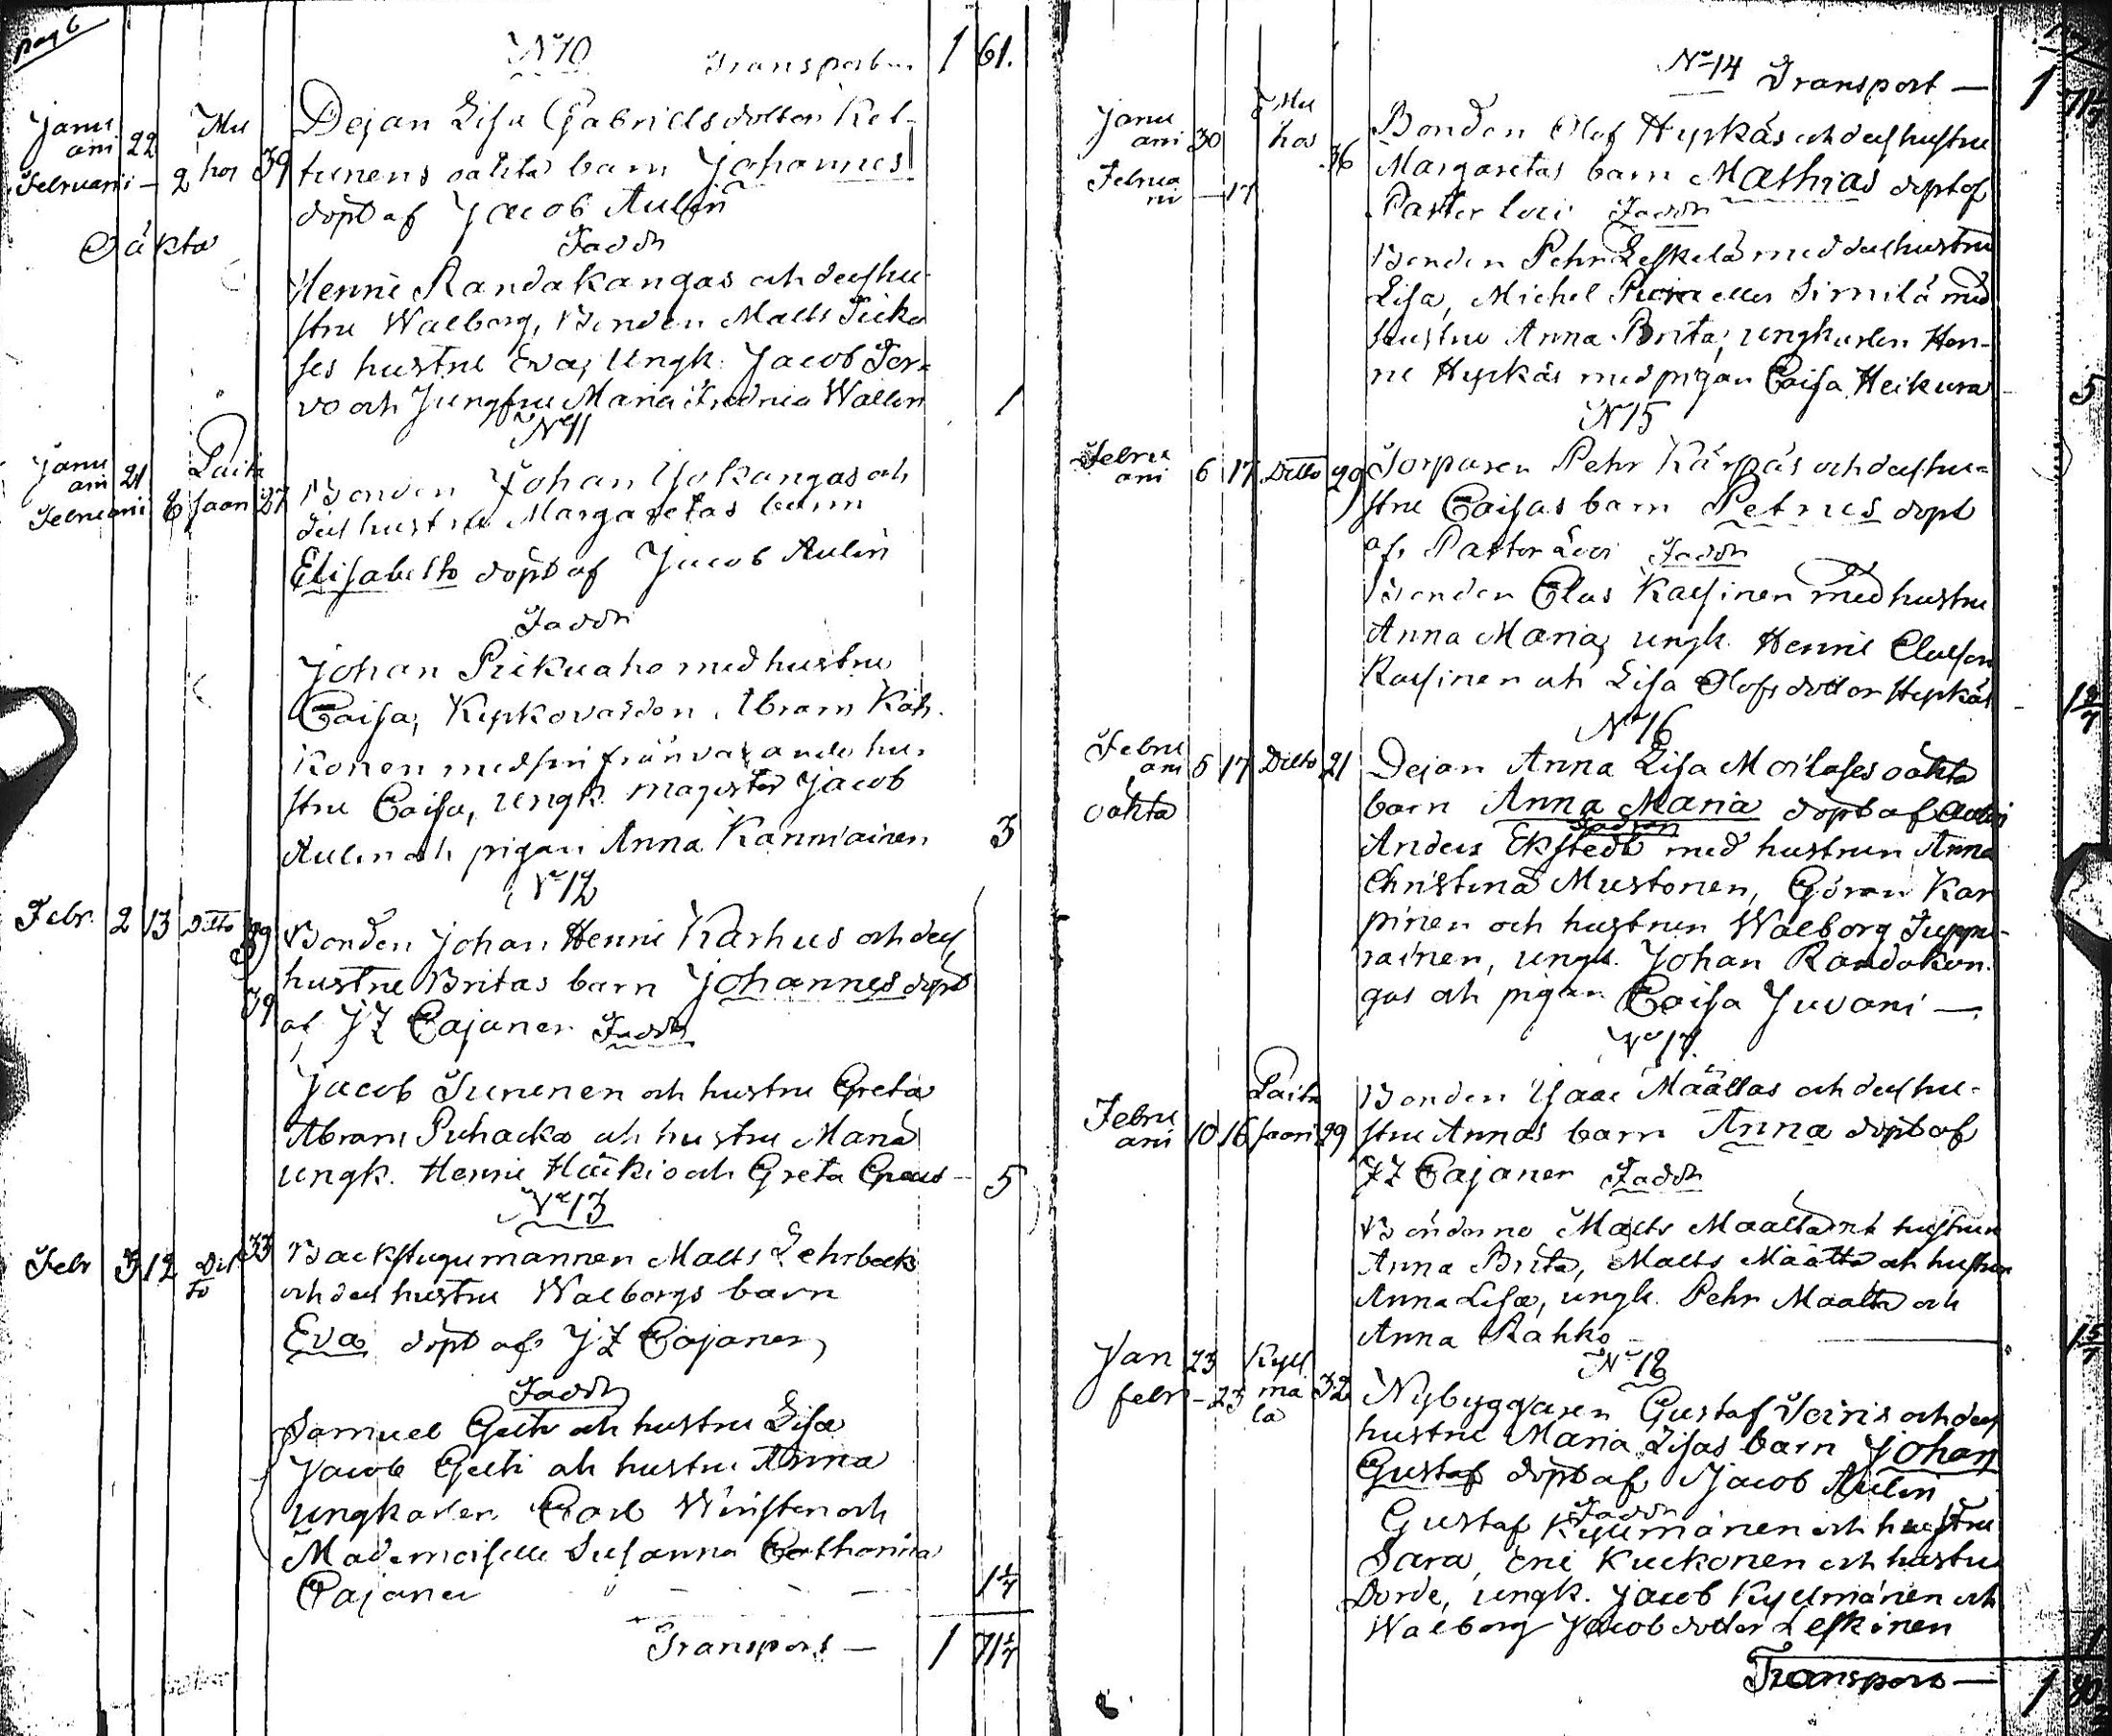 pag 6
No 10 Transport 1 61.
Janu
arii 22
Februarii — 2
Mu
hos
39
Oäkta
Dejan Lisa Gabrielsdotter Kel-
tunens oäkta barn Johannes
döpt af Jacob Aulin
Faddr
Henric Randakangas och dess hu
stru Walborg, Bonden Matts
ses hustru Eva, Ungk. Jacob Ter-
vo och Jungfru Maria Fredrica Wallen
1
No 11
Janu
arii 21
Februarii 6
Paita
saari 27
Bonden Johan Yokangas och
dess hustru Margaretas barn
Elisabeth döpt af Jacob Aulin
Faddr
Johan Piikuaho med hustru
Caisa, Kyrkovärden Abram Käh-
könen med sin frånvarande hu-
stru Caisa, Ungk. magister Jacob
Aulin och pigan Anna Kanniainen
3
No 12
Febr. 2 13 Ditto 39
39
Bonden Johan Henric Karhus och dess
hustru Britas barn Johannes döpt
af J Z Cajaner Faddr
Jacob Tunenen och hustru Greta
Abram Puhacka och hustru Maria
ungk. Henric Häikiö och Greta
5
No 13
Febr 3 12 Dit
to
33
Backstugumannen Matts Lehrbecks
och dess hustru Walborgs barn
Eva döpt af J Z Cajaner
Faddr
Samuel Gelti och hustru Lisa
Jacob Gelti och hustru Anna
ungkarlen Carl Winsten och
Mademoiselle Susanna Catharina
Cajaner
Transport — 1 71
No 14 Transport — 1
Janu
arii 30
Februa
rii — 17
Mu
hos
36
Bonden Olof Hyrkäs och dess hustru
Margaretas barn Mathias döpt af
Pastor loci Faddr
Bonden Pehr Leskelä med dess hustru
Lisa, Michel eller Sirnilä med
hustru Anna Brita, ungkarlen Hen-
ric Hyrkäs med pigan Caisa Heikura
5
No 15
Febru
arii 6 17 Ditto 29
Torparen Pehr Kärpäs och dess hu-
stru Caisas barn Petrus döpt
af Pastor Loci Faddr
Bonden Clas Kassinen med hustru
Anna Maria, ungk. Henric Classon
Kassinen och Lisa Olofsdotter Hyrkäs
No 16
Febru
arii 5 17 Ditto 21
oäkta
Dejan Anna Lisa Moilases oäkta
barn Anna Maria döpt af Aulin
Faddrar
Anders Ekstedt med hustrun Anna
Christina Mustonen, Göran Kar
pinen och hustrun Walborg Juppu-
rainen, ungk. Johan Randakan-
gas och pigan Caisa Juvani —
No 17.
Febru
arii 10 16
Paita
saari 29
Bonden Isaac Määttas och dess hu-
stru Annas barn Anna döpt af
J Z Cajaner Faddr
Bönderne Matts Määttä och hustrun
Anna Brita, Matts Määttä och hustrun
Anna Lisa, ungk. Pehr Määttä och
Anna Rahko
No 18
Jan 23
febr — 23
Kyll
mä
lä
32
Nybyggaren Gustaf Vairis och dess
hustru Maria Lisas barn Johan
Gustaf döpt af Jacob Aulin
Faddr
Gustaf Kylmänen och hustru
Sara, Eric Kuckonen och hustru
Dorde, ungk. Jacob Kyllmänen och
Walborg Jacobsdotter Leskinen
1
Transport — 1 80